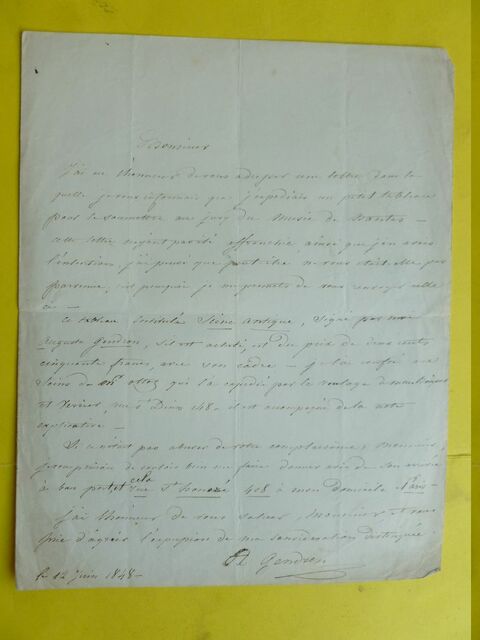 Monsieur
J'ai eu l'honneur de vous adresser une lettre dans la
quelle je vous informais que j'expédiais un petit tableau
pour le soumettre au jury du Musée de Nantes —
cette lettre n'ayant pas été affranchie, ainsi que j'en avais
l'intention, j'ai pensé que peut-être ne vous était elle pas
parvenue, c'est pourquoi je me permets de vous envoyer celle
ci —
Ce tableau intitulé Scène antique, signé par moi
Auguste Gendron, s'il est acheté, est du prix de deux cents
cinquante francs, avec son cadre — je l'ai confié aux
soins de Mr qui l'a expédié par le roulage
et rue St Denis 148 — il est accompagné de la note
explicative —
Si ce n'était pas abuser de votre complaisance, Monsieur,
je vous prierais de vouloir bien me faire donner avis de son arrivée
à bon port, et cela rue St honoré 408 à mon domicile Paris
J'ai l'honneur de vous saluer, Monsieur, et vous
prie d'agréer l'expression de ma considération distinguée
A Gendron
le 12 Juin 1848 —